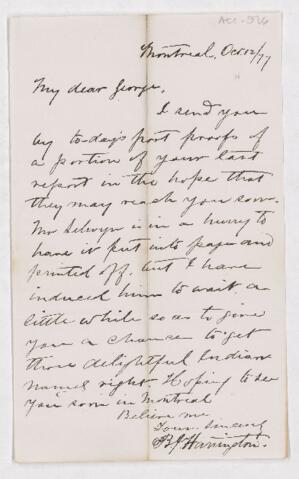 Acc-576
Montreal, Oct 12/77
My dear George,
I send you
by to-day's post proofs of
a portion of your last
report in the hope that
they may reach you soon.
Mr Selwyn is in a hurry to
have it put into pages and
printed off, but I have
induced him to wait a
little while so as to give
you a chance to get
those delightful Indian
names right. Hoping to see
you soon in Montreal
Believe me
Yours sincerely
BJ Harrington.